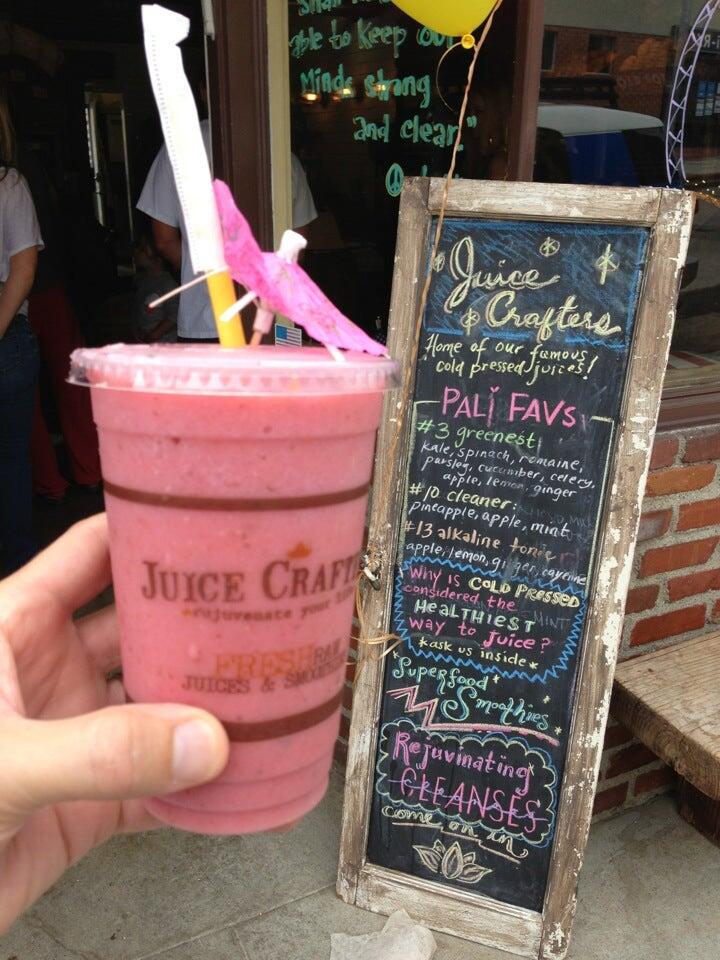 able to keep our
Minds strong
and clear."
Juice
Crafters
Home of our famous
cold pressed juices!
PALI FAVS
#3 greenest:
kale, spinach, romaine,
parsley, cucumber, celery,
apple, lemon, ginger
#10 cleaner:
pineapple, apple, mint
#13 alkaline tonic
apple, lemon, ginger, cayenne
Why is COLD PRESSED
considered the
HEALTHIEST
way to juice?
*ask us inside*
Superfood
Smoothies
Rejuvinating
CLEANSES
come on in
JUICE CRAFT
rejuvenate your
FRESH RAW
JUICES & SMOOTHI